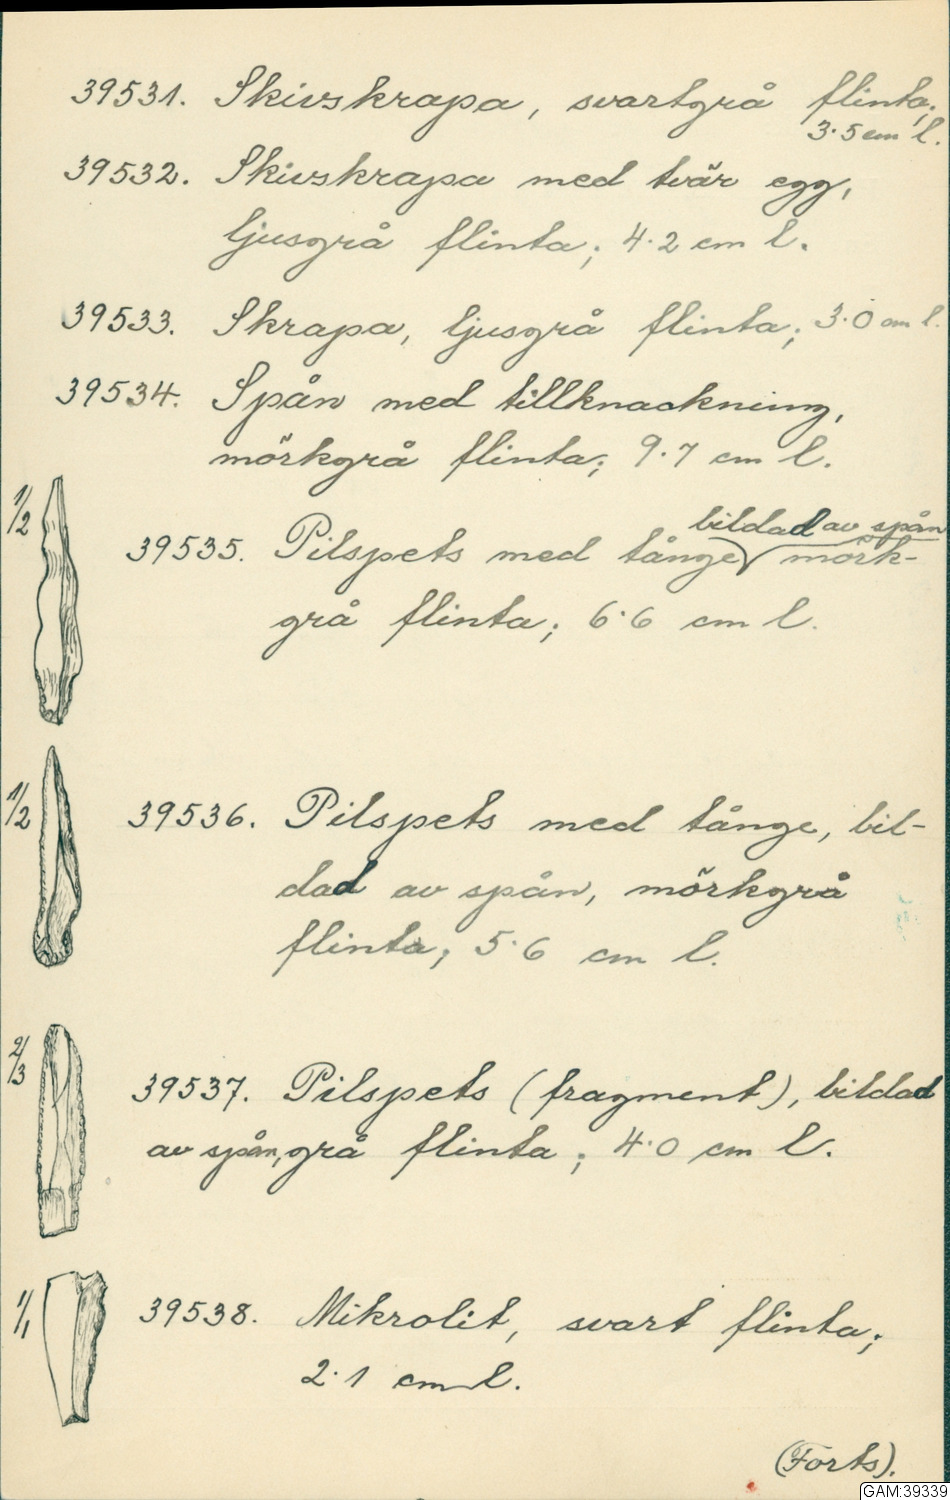 39531. Skivskrapa, svartgrå flinta;
3.5 cm l.
39532. Skivskrapa med tvär egg,
ljusgrå flinta; 4.2 cm l.
39533. Skrapa, ljusgrå flinta; 3.0 cm l.
39534. Spån med tillknackning,
mörkgrå flinta; 9.7 cm l.
1/2
bildad av spån
39535. Pilspets med tånge, mörk-
grå flinta; 6.6 cm l.
1/2
39536. Pilspets med tånge, bil-
dad av spån, mörkgrå
flinta; 5.6 cm l.
2/3
39537. Pilspets (fragment), bildad
av spån, grå flinta; 4.0 cm l.
1/1
39538. Mikrolit, svart flinta;
2.1 cm l.
(Forts).
GAM:39339